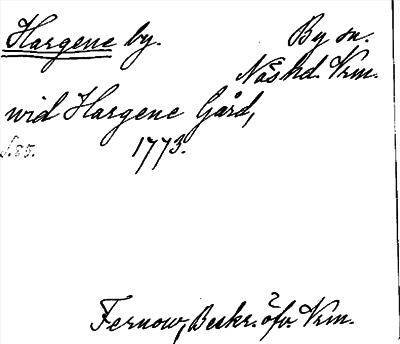 Hargene by. By sn.
Näs hd. Vrm.
wid Hargene Gård,
s. 85. 1773.
Fernow, Beskr. öfv. Vrm.